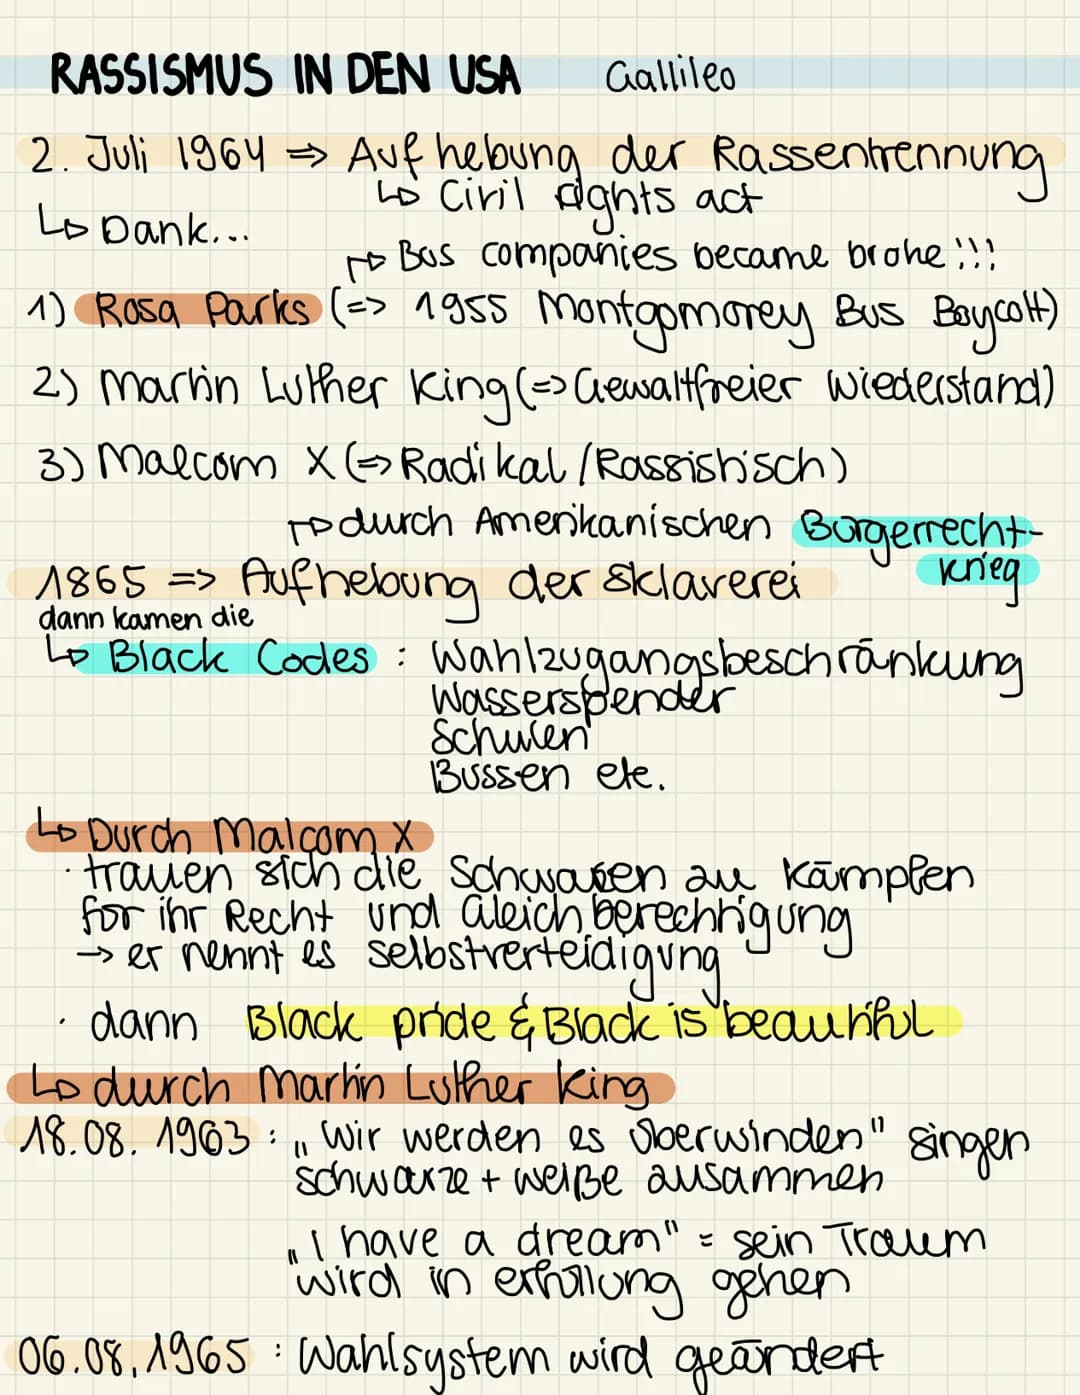 RASSISMUS IN DEN USA Gallileo
2. Juli 1964 => Aufhebung der Rassentrennung
↳ Civil rights act
↳ Dank...
↱ Bus companies became broke!!!
1) Rosa Parks (=> 1955 Montgomorey Bus Boycott)
2) Martin Luther King (=> Gewaltfreier Wiederstand)
3) Malcom X (=> Radikal / Rassistisch)
↱ durch Amerikanischen Bürgerrecht-
krieg
1865 => Aufhebung der Sklaverei
dann kamen die
↳ Black Codes : Wahlzugangsbeschränkung
Wasserspender
Schulen
Bussen etc.
↳ Durch Malcom X
· trauen sich die Schwarzen zu kämpfen
für ihr Recht und Gleichberechtigung
→ er nennt es selbstverteidigung
· dann Black pride & Black is beautiful
↳ durch Martin Luther King
18.08. 1963 : „Wir werden es überwinden" singen
schwarze + weiße zusammen
„I have a dream" = sein Traum
wird in erfüllung gehen
06.08.1965 : Wahlsystem wird geändert